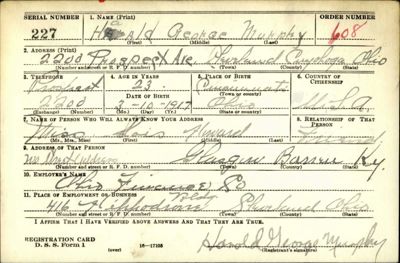 SERIAL NUMBER 1. NAME (Print) ORDER NUMBER
227 Harold George Murphy 608
(First) (Middle) (Last)
2. ADDRESS (Print)
2200 Prospect Ave Cleveland Cuyahoga Ohio
(Number and street or R. F. D. number) (Town) (County) (State)
3. TELEPHONE 4. AGE IN YEARS 5. PLACE OF BIRTH 6. COUNTRY OF CITIZENSHIP
Prospect 23 Cincinnati
DATE OF BIRTH (Town or county)
2200 3-10-1917 Ohio U.S.A.
(Exchange) (Number) (Mo.) (Day) (Yr.) (State or country)
7. NAME OF PERSON WHO WILL ALWAYS KNOW YOUR ADDRESS 8. RELATIONSHIP OF THAT PERSON
Miss Lois Friend
(Mr., Mrs., Miss) (First) (Middle) (Last)
9. ADDRESS OF THAT PERSON
Glasgow Barren Ky
(Number and street or R. F. D. number) (Town) (County) (State)
10. EMPLOYER'S NAME
Ohio Finance Co
11. PLACE OF EMPLOYMENT OR BUSINESS
416 Hippodrome Bldg Cleveland Ohio
(Number and street or R. F. D. number) (Town) (County) (State)
I AFFIRM THAT I HAVE VERIFIED ABOVE ANSWERS AND THAT THEY ARE TRUE.
REGISTRATION CARD
D. S. S. Form 1 (over) 16-17105 Harold George Murphy
(Registrant's signature)